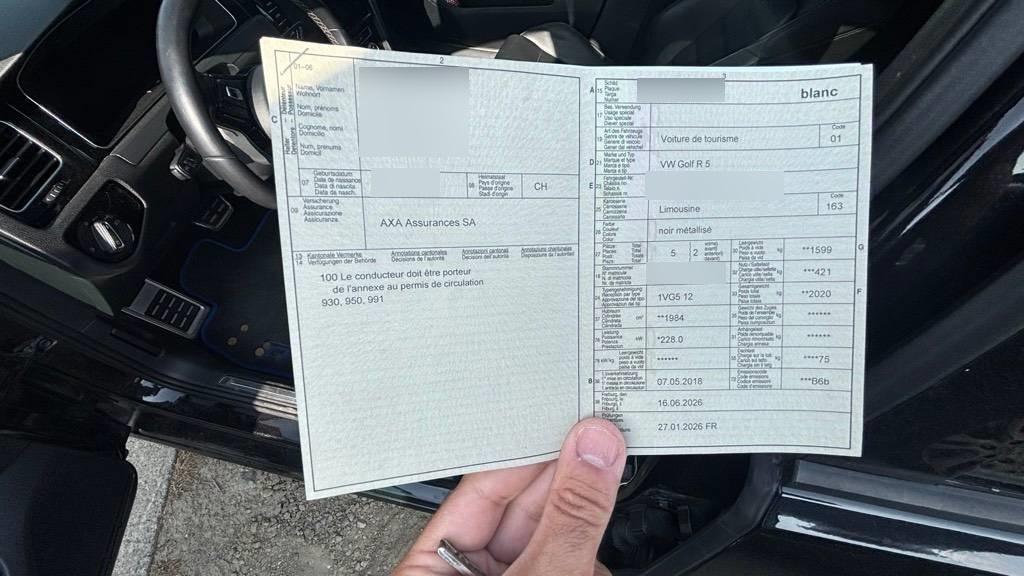 2
01-06
Name, Vornamen
Wohnort
Nom, prénoms
Domicile
Cognome, nomi
Domicilio
Num, prenums
Domicil
C
07
Geburtsdatum
Date de naissance
Data di nascita
Data da nasch.
08
Heimatstaat
Pays d'origine
Paese d'origine
Stadi d'origin
CH
09
Versicherung
Assurance
Assicurazione
Assicuranza
AXA Assurances SA
13 Kantonale Vermerke
14 Verfügungen der Behörde
Annotations cantonales
Décisions de l'autorité
Annotazioni cantonali
Decisioni dell'autorità
Annotaziuns chantunalas
Disposiziuns da l'autoritad
100 Le conducteur doit être porteur
de l'annexe au permis de circulation
930, 950, 991
3
A 15
Schild
Plaque
Targa
Numer
blanc
17
Bes. Verwendung
Usage spécial
Uso speciale
Diever spezial
19
Art des Fahrzeugs
Genre de véhicule
Genere di veicolo
Gener dal vehichel
Voiture de tourisme
Code
01
D 21
Marke und Typ
Marque et type
Marca e tipo
Marca e tip
VW Golf R 5
E 23
Fahrgestell-Nr.
Châssis no
Telaio n.
Schassis nr.
25
Karosserie
Carrosserie
Carrozzeria
Carossaria
Limousine
Code
163
26
Farbe
Couleur
Colore
Color
noir métallisé
27
Plätze: Total
Places: Total
Posti: Totale
Plazs: Total
5
2
vorne
avant
anteriori
davant
30
Leergewicht
Poids à vide
Peso a vuoto
Paisa da vid
kg
**1599
G
18
Stammnummer
N° matricule
N. di matricola
Nr. da matricla
32
Nutz-/Sattellast
kg
***421
24
Typengenehmigung
Réception par type
Approvazione del tipo
Approvaziun dal tip
1VG5 12
33
Gesamtgewicht
Poids total
Peso totale
Paisa totala
kg
**2020
F
37
Hubraum
Cylindrée
Cilindrata
Cilindrada
cm³
**1984
Gewicht des Zuges
Poids de l'ensemble
kg
******
76
Leistung
Puissance
Potenza
Prestaziun
kW
*228.0
31
Anhängelast
Poids remorquable
kg
******
78 kW/kg
Leergewicht
poids à vide
peso a vuoto
paisa da vid
******
55
Dachlast
Charge sur le toit
Carico sul tetto
Chargia sin il tetg
kg
****75
B 36
1. Inverkehrsetzung
1re mise en circulation
1a messa in circolazione
07.05.2018
72
Emissionscode
Code émissions
Codice emissioni
Code d'emissiuns
***B6b
38
Freiburg, den
Fribourg, le
Friburgo, il
Friburg, il
16.06.2026
Prüfungen
27.01.2026 FR